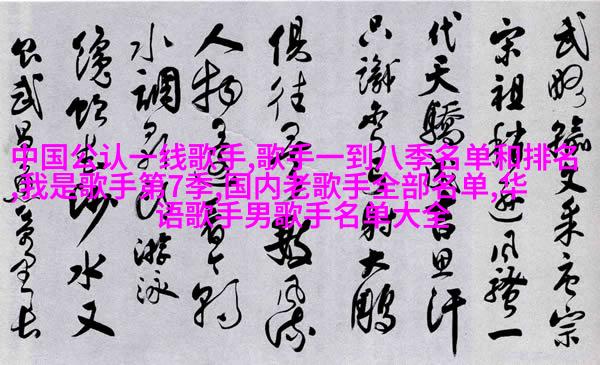 中国公认一线歌手,歌手一到八季名单和排名
,我是歌手第7季,国内老歌手全部名单,华
语歌手男歌手名单大全
武略输文采唐宗
宋祖稍逊风骚一
代天驕成吉思汗
只識弯弓射大鵰
俱往矣数风流
人物还看今朝
水調歌头游泳
纔飲長沙水又
食武昌魚萬里長